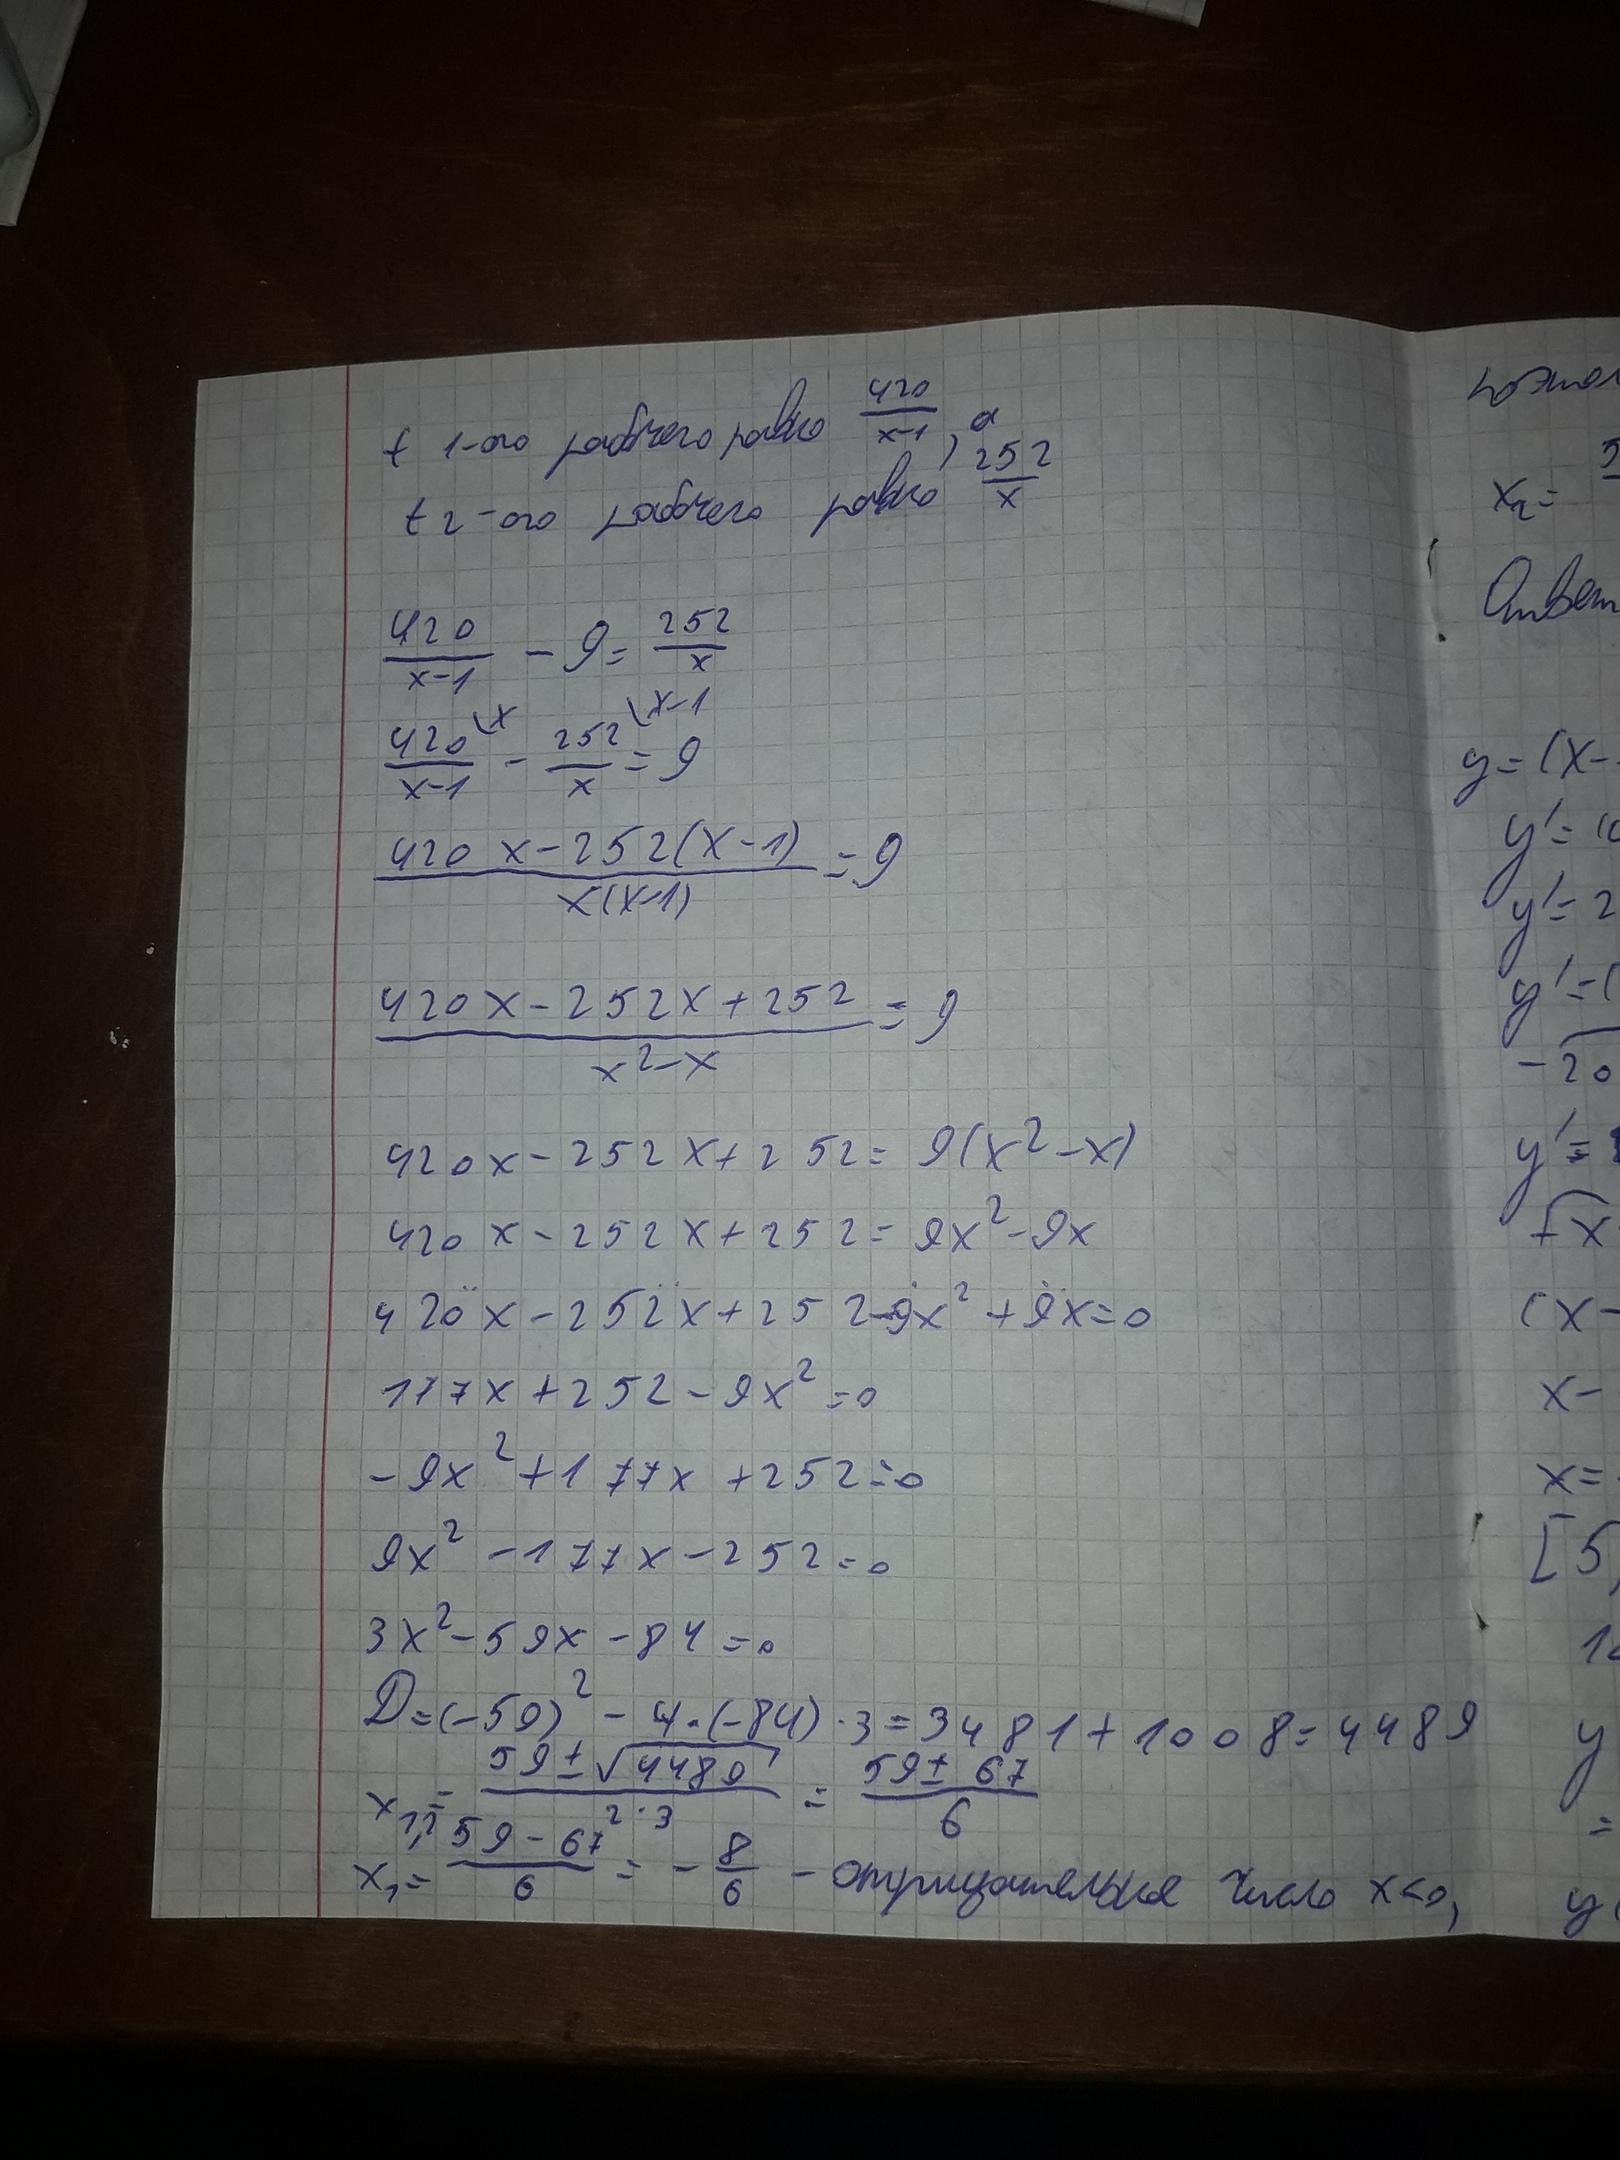 t 1-ого рабочего равно 420/(x-1), а
t 2-ого рабочего равно 252/x
420/(x-1) - 9 = 252/x
420\x/(x-1) - 252\x-1/x = 9
(420x-252(x-1))/(x(x-1)) = 9
(420x-252x+252)/(x²-x) = 9
420x-252x+252=9(x²-x)
420x-252x+252=9x²-9x
420x-252x+252-9x²+9x=0
177x+252-9x²=0
-9x²+177x+252=0
9x²-177x-252=0
3x²-59x-84=0
D=(-59)²-4·(-84)·3=3481+1008=4489
x₁,₂=(59±√4489)/(2·3)=(59±67)/6
x₁=(59-67)/6=-8/6 - отрицательное число x<0,
x₂= 5
Ответ
y=(x-
y'=
y'=2
y'=(
-20
y'=
+x
(x-
x-
x=
[5,
y
=
y(